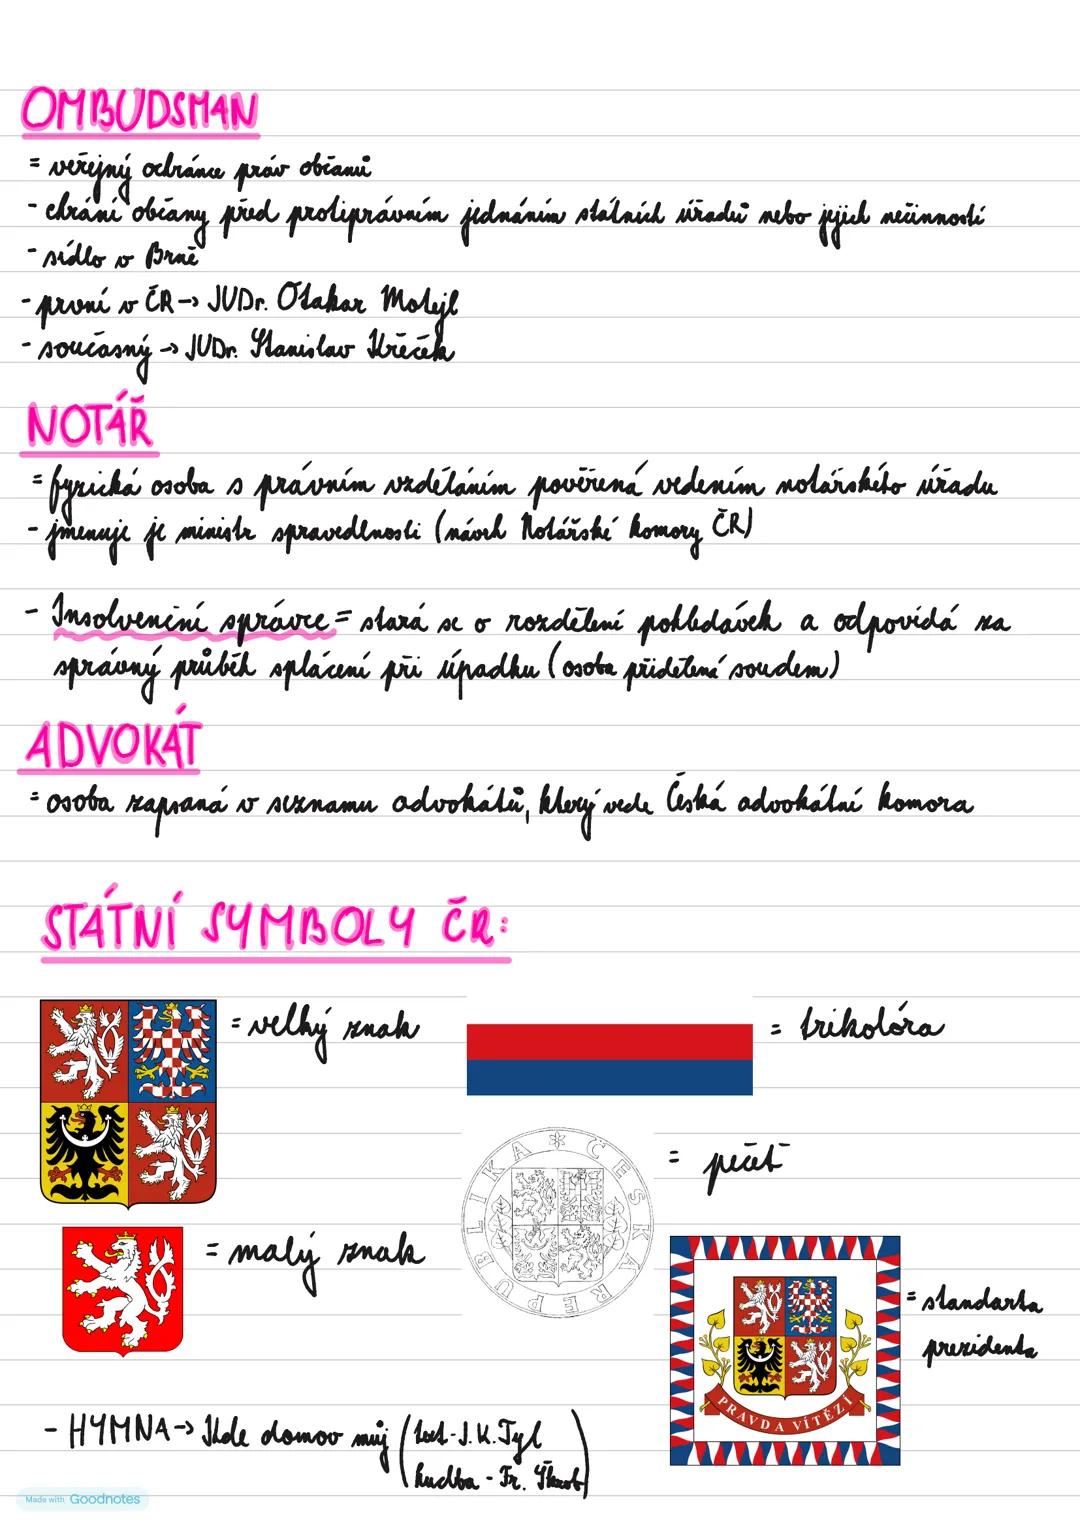 OMBUDSMAN
= veřejný ochránce práv občanů
- chrání občany před protiprávním jednáním státních úřadů nebo jejich nečinností
- sídlo v Brně
- první v ČR → JUDr. Otakar Motejl
- současný → JUDr. Stanislav Křeček
NOTÁŘ
= fyzická osoba s právním vzděláním pověřená vedením notářského úřadu
- jmenuje je ministr spravedlnosti (návrh Notářské komory ČR)
- Insolvenční správce = stará se o rozdělení pohledávek a odpovídá za
správný průběh splácení při úpadku (osoba přidělená soudem)
ADVOKÁT
= osoba zapsaná v seznamu advokátů, který vede Česká advokátní komora
STÁTNÍ SYMBOLY ČR:
= velký znak
= trikolóra
ČESKÁ REPUBLIKA
= pečeť
= malý znak
= standarta
prezidenta
PRAVDA VÍTĚZÍ
- HYMNA → Kde domov můj (text - J. K. Tyl
hudba - Fr. Škroup)
Made with Goodnotes